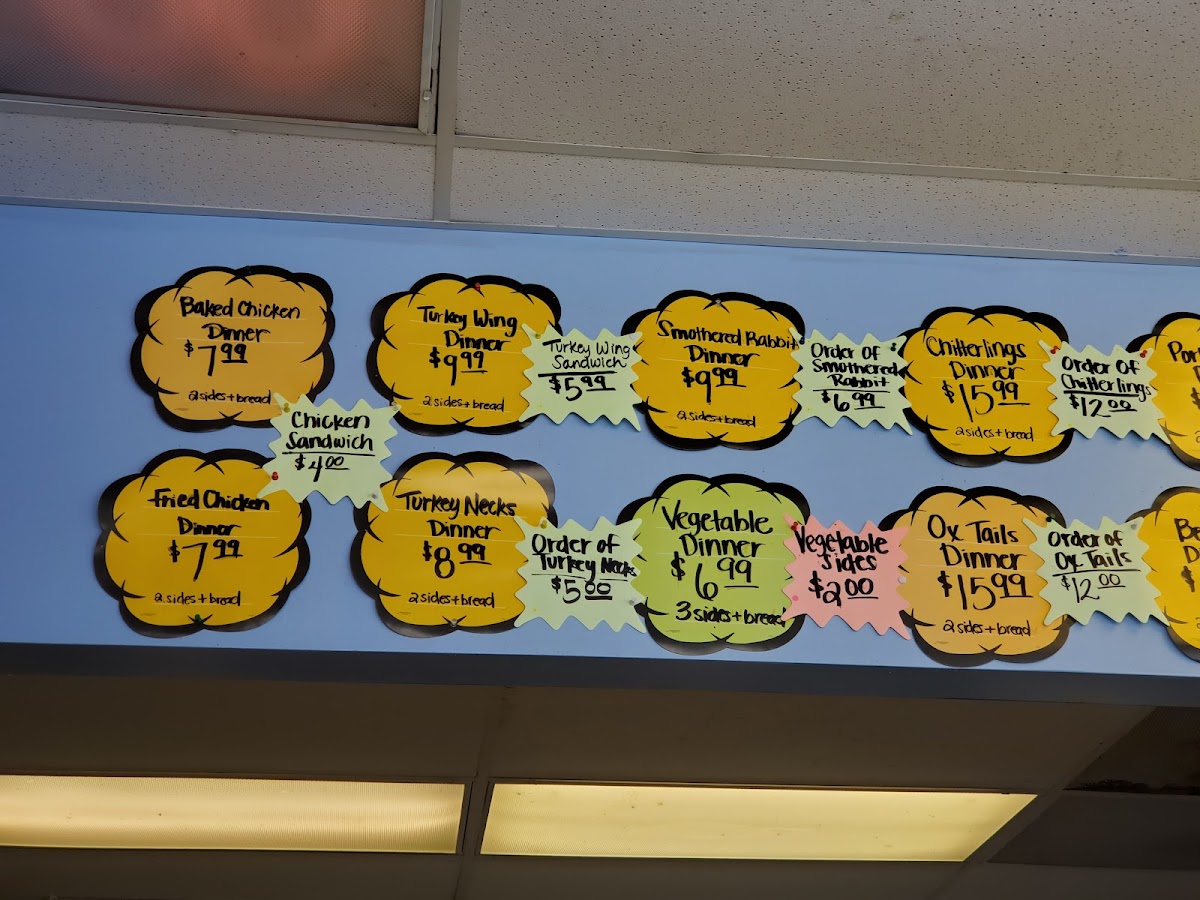 Baked Chicken
Dinner
$7.99
2 sides + bread
Turkey Wing
Dinner
$9.99
2 sides + bread
Turkey Wing
Sandwich
$5.99
Smothered Rabbit
Dinner
$9.99
2 sides + bread
Order of
Smothered
Rabbit
$6.99
Chitterlings
Dinner
$15.99
2 sides + bread
Order of
Chitterlings
$12.00
Chicken
Sandwich
$4.00
Fried Chicken
Dinner
$7.99
2 sides + bread
Turkey Necks
Dinner
$8.99
2 sides + bread
Order of
Turkey Necks
$5.00
Vegetable
Dinner
$6.99
3 sides + bread
Vegetable
sides
$2.00
Ox Tails
Dinner
$15.99
2 sides + bread
Order of
Ox Tails
$12.00